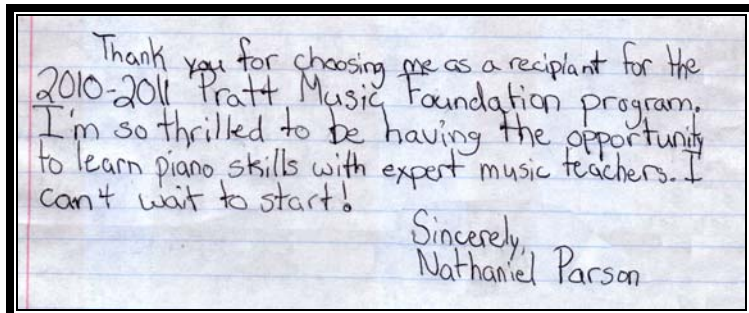 Thank you for choosing me as a recipiant for the
2010-2011 Pratt Music Foundation program.
I'm so thrilled to be having the opportunity
to learn piano skills with expert music teachers. I
can't wait to start!
Sincerely,
Nathaniel Parson